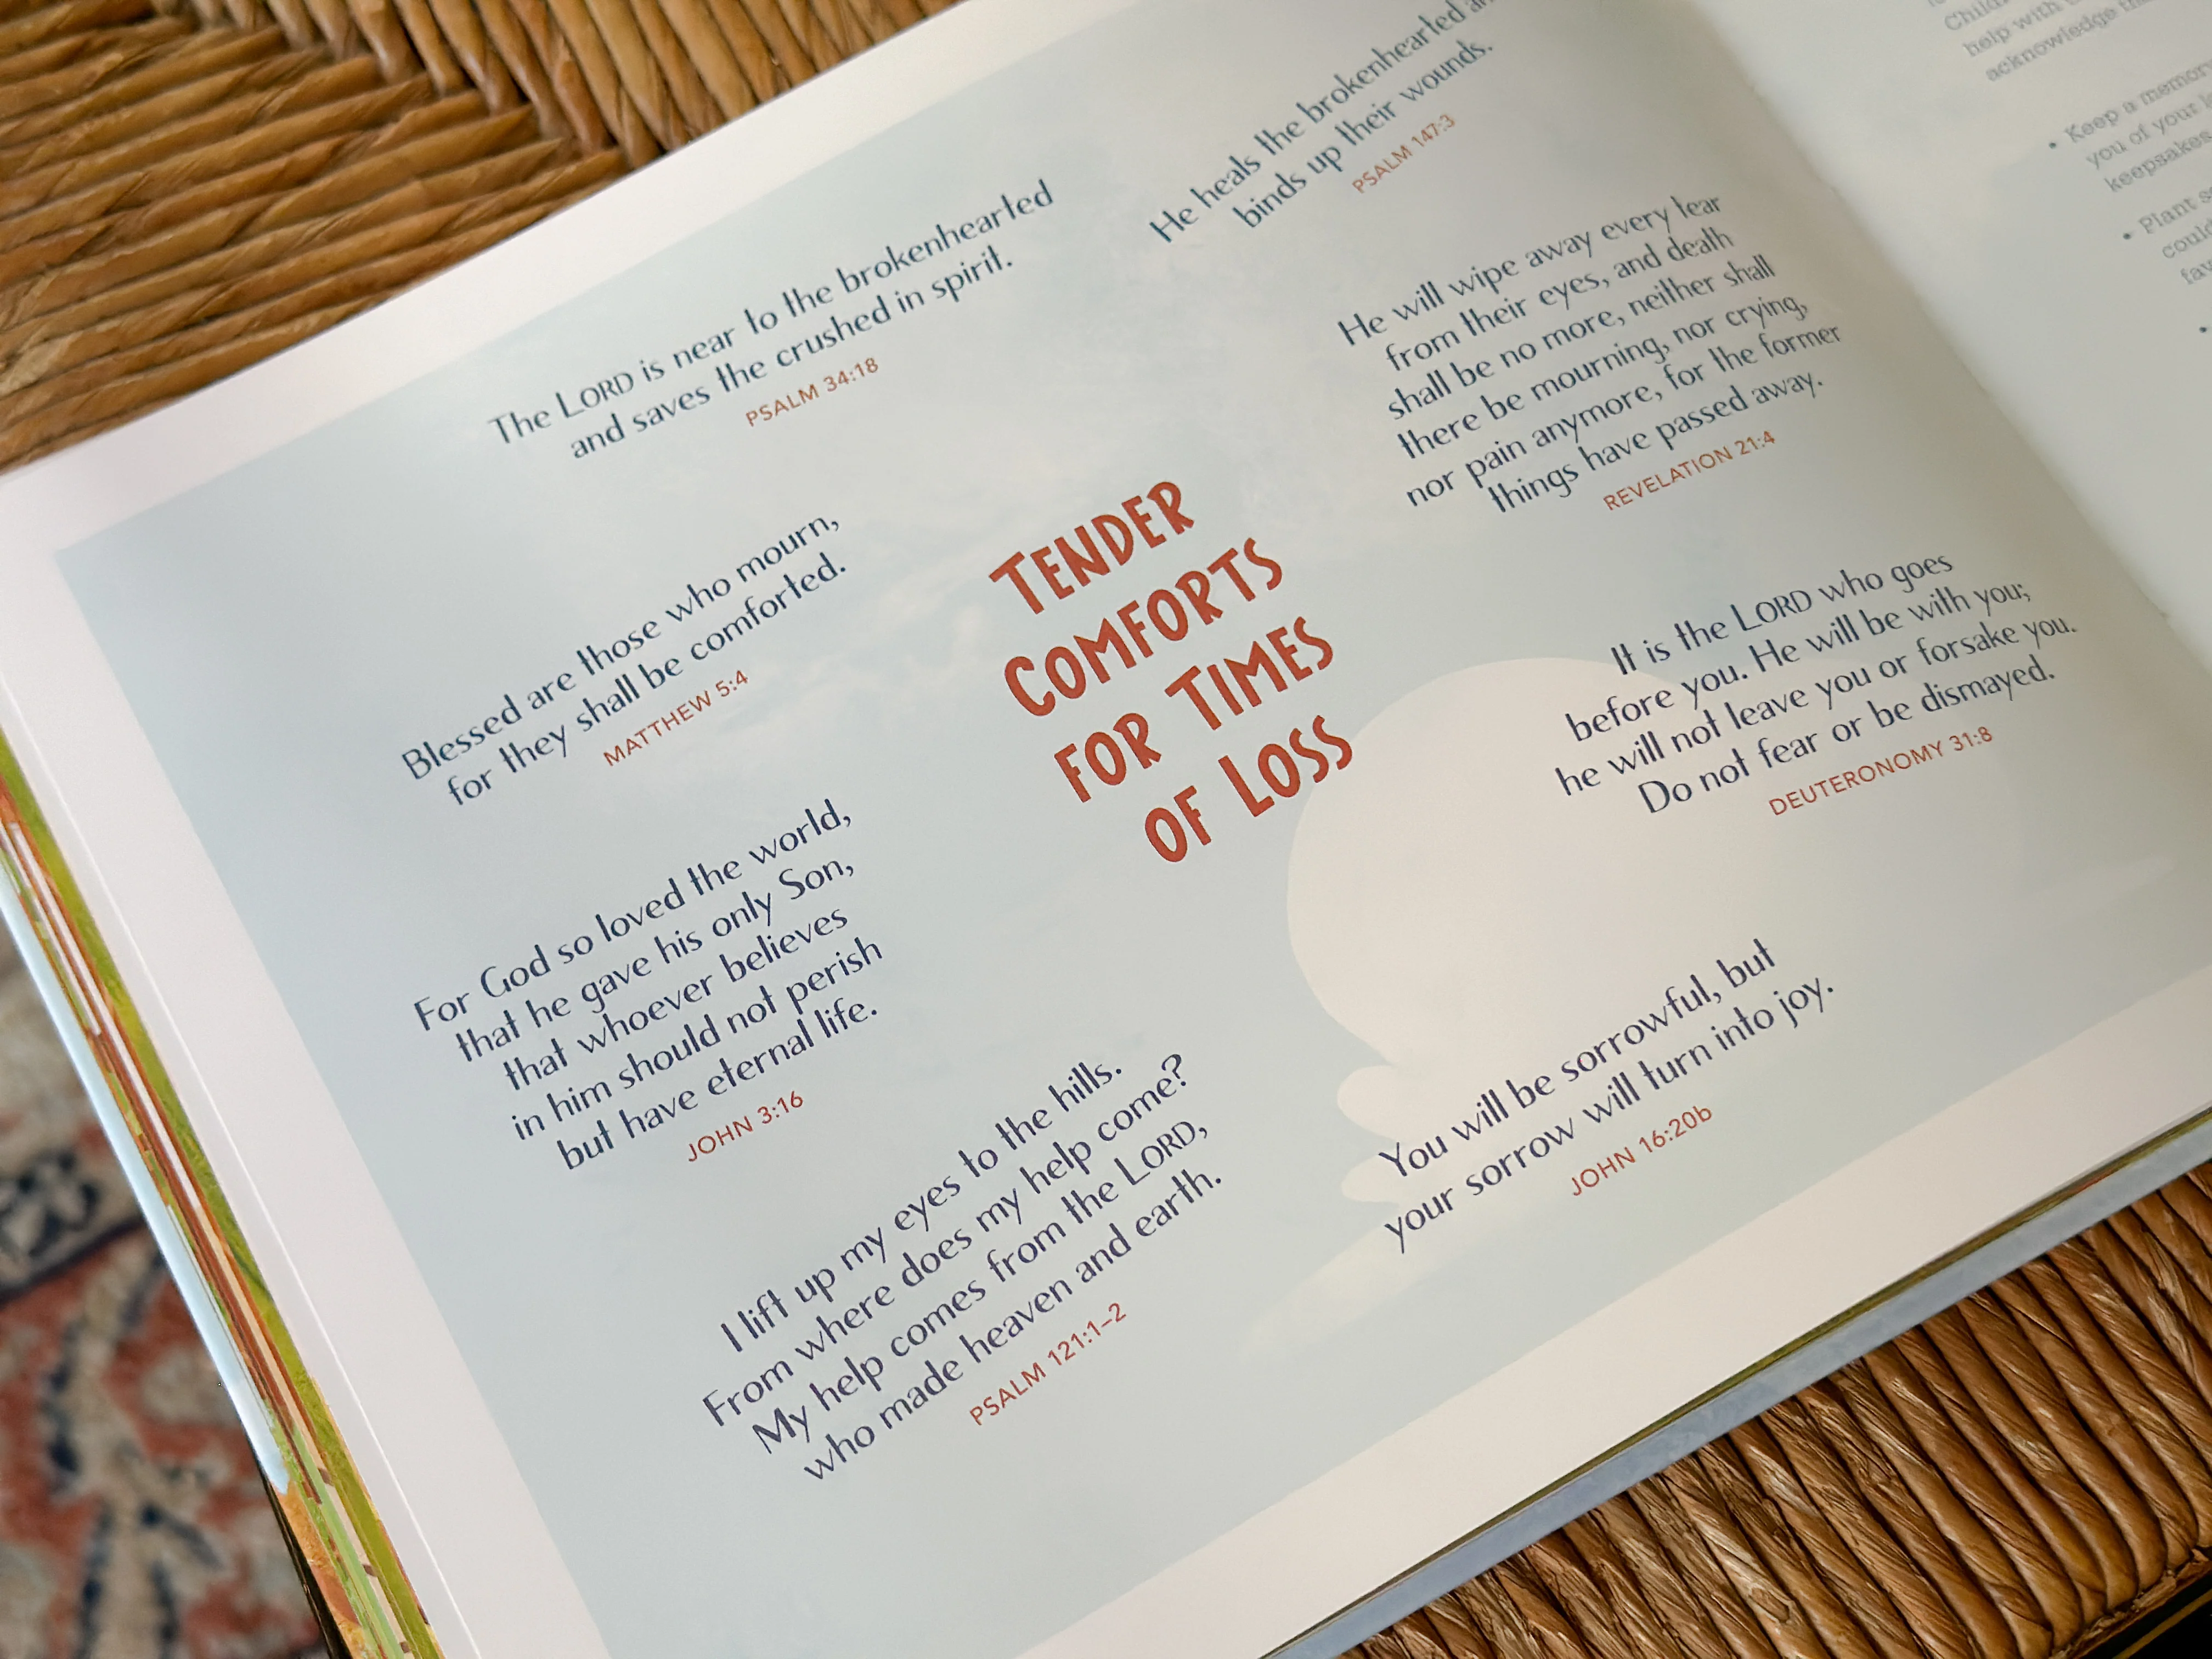 The LORD is near to the brokenhearted
and saves the crushed in spirit.
PSALM 34:18
He heals the brokenhearted
binds up their wounds.
PSALM 147:3
He will wipe away every tear
from their eyes, and death
shall be no more, neither shall
there be mourning, nor crying,
nor pain anymore, for the former
things have passed away.
REVELATION 21:4
Blessed are those who mourn,
for they shall be comforted.
MATTHEW 5:4
TENDER
COMFORTS
FOR TIMES
OF LOSS
It is the LORD who goes
before you. He will be with you;
he will not leave you or forsake you.
Do not fear or be dismayed.
DEUTERONOMY 31:8
For God so loved the world,
that he gave his only Son,
that whoever believes
in him should not perish
but have eternal life.
JOHN 3:16
I lift up my eyes to the hills.
From where does my help come?
My help comes from the LORD,
who made heaven and earth.
PSALM 121:1–2
You will be sorrowful, but
your sorrow will turn into joy.
JOHN 16:20b
help with
acknowledge
• Keep a memory
you of your
keepsakes
• Plant